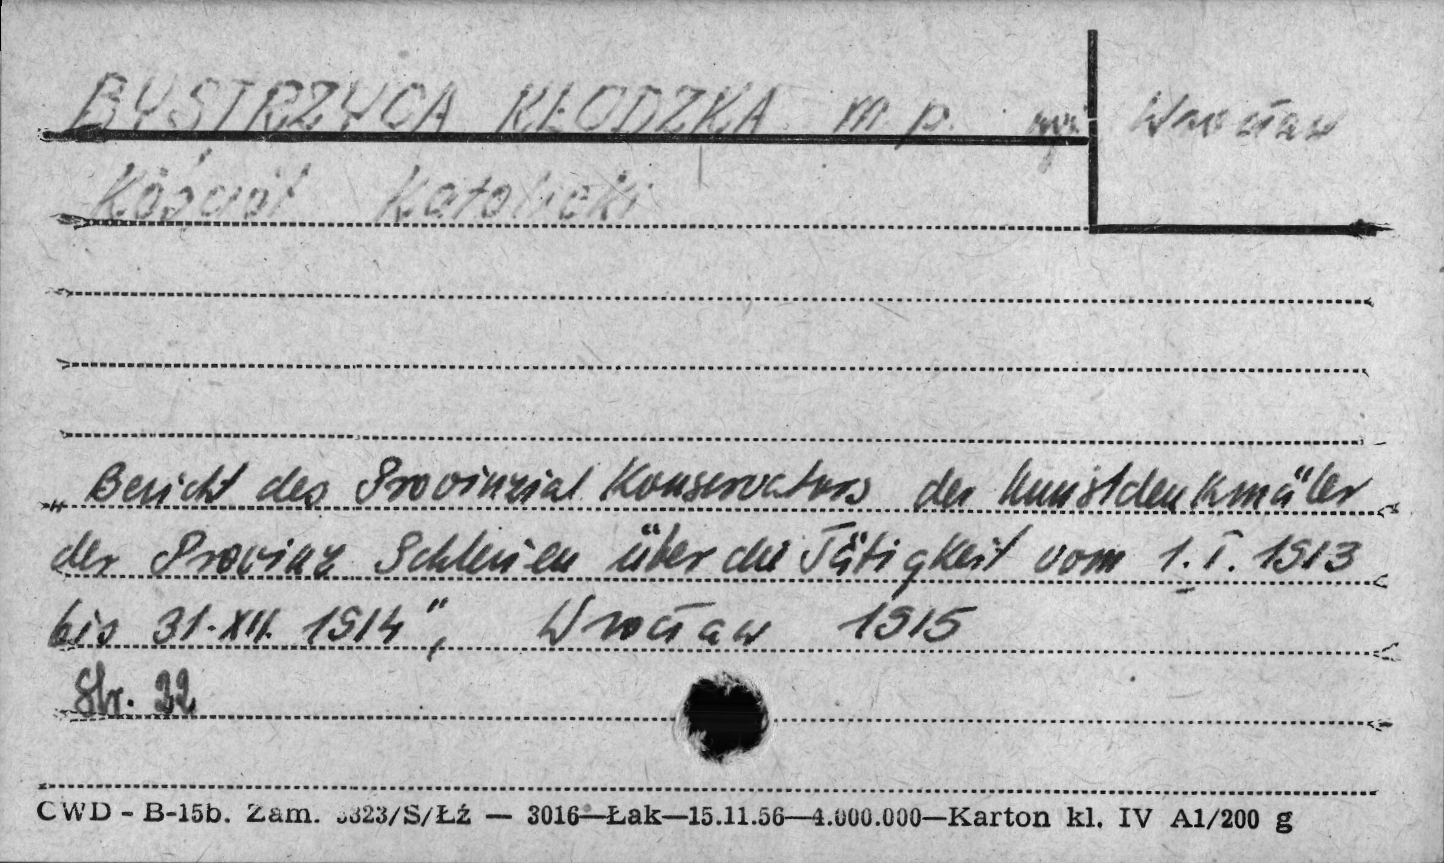 BYSTRZYCA KŁODZKA m. p. Wrocław
Kościół Katolicki
„Bericht des Provinzial Konservators der Kunstdenkmäler
der Provinz Schlesien über die Tätigkeit vom 1. I. 1913
bis 31. XII. 1914", Wrocław 1915
Str. 22
CWD - B-15b. Zam. 3823/S/Łź — 3016—Łak—15.11.56—4.000.000—Karton kl. IV A1/200 g